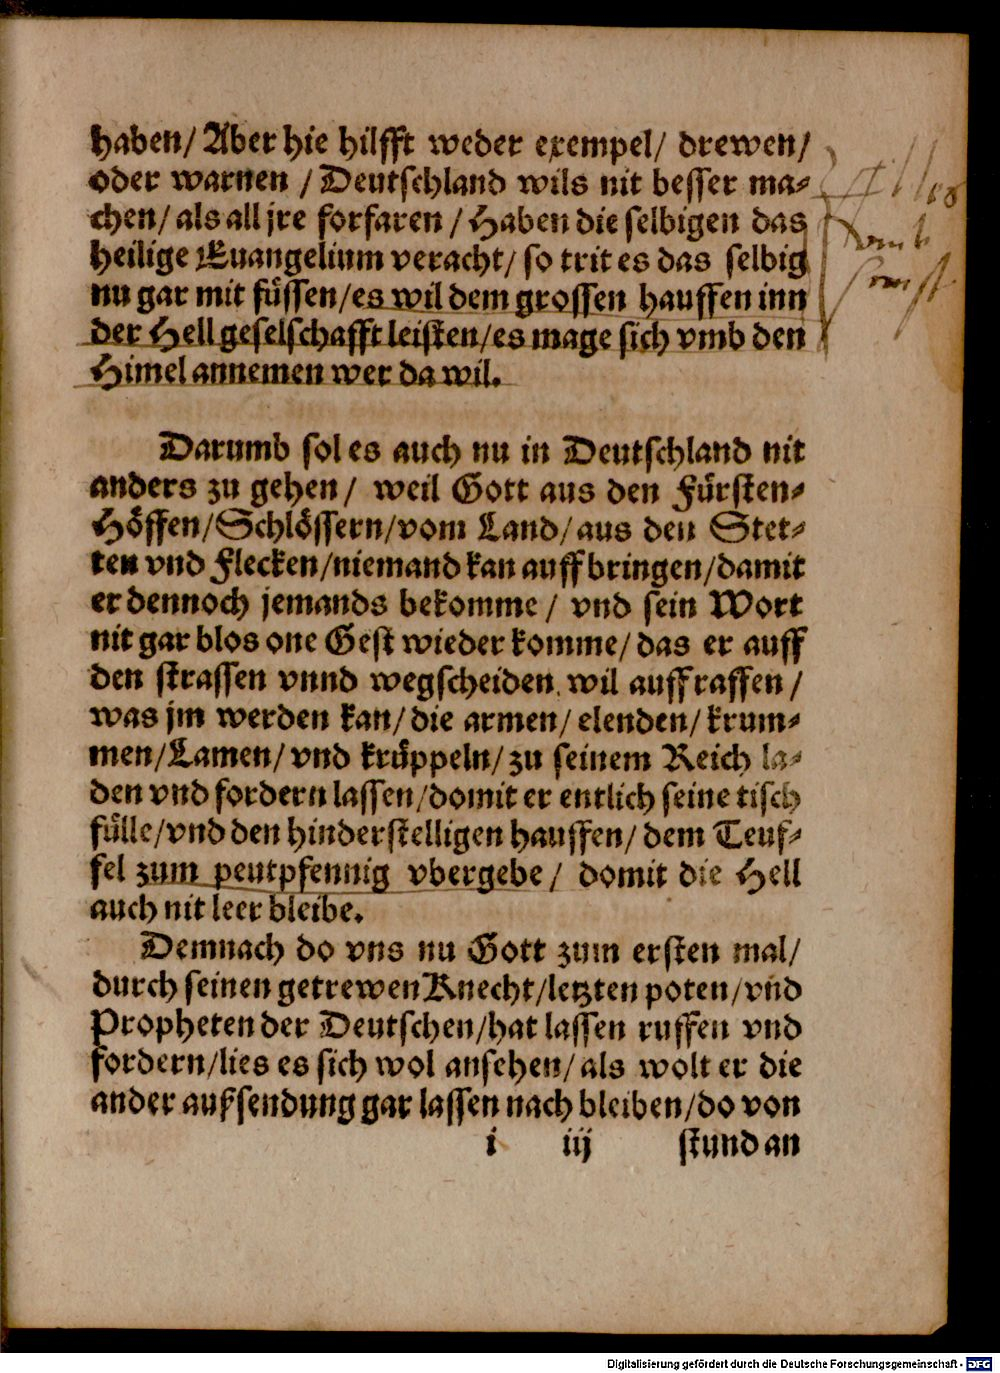 haben/ Aber hie hilfft weder exempel/ drewen/
oder warnen / Deutschland wils nit besser ma⸗
chen/ als all jre forfaren / Haben die selbigen das
heilige Euangelium veracht/ so trit es das selbig
nu gar mit füssen/es wil dem grossen hauffen inn
der Hell geselschafft leisten/es mage sich vmb den
Himel annemen wer da wil.
Darumb sol es auch nu in Deutschland nit
anders zu gehen/ weil Gott aus den Fürsten⸗
Höffen/Schlössern/vom Land/aus den Stet⸗
ten vnd Flecken/niemand kan auffbringen/damit
er dennoch jemands bekomme/ vnd sein Wort
nit gar blos one Gest wieder komme/das er auff
den strassen vnnd wegscheiden wil auffraffen/
was jm werden kan/die armen/elenden/krum⸗
men/Lamen/vnd krüppeln/zu seinem Reich la⸗
den vnd fordern lassen/domit er entlich seine tisch
fülle/vnd den hinderstelligen hauffen/dem Teuf⸗
fel zum peutpfennig vbergebe/ domit die Hell
auch nit leer bleibe.
Demnach do vns nu Gott zum ersten mal/
durch seinen getrewen Knecht/letzten poten/vnd
Propheten der Deutschen/hat lassen ruffen vnd
fordern/lies es sich wol ansehen/als wolt er die
ander außsendung gar lassen nach bleiben/do von
i iij stund an
Digitalisierung gefördert durch die Deutsche Forschungsgemeinschaft - DFG